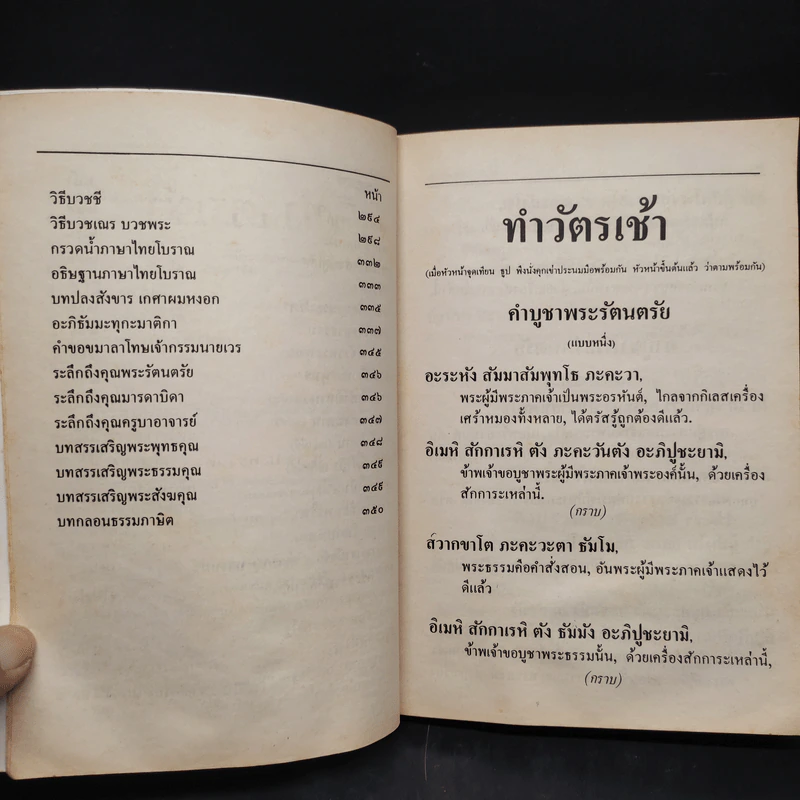 หน้า
วิธีบวชชี ๒๙๔
วิธีบวชเณร บวชพระ ๒๙๘
กรวดน้ำภาษาไทยโบราณ ๓๓๒
อธิษฐานภาษาไทยโบราณ ๓๓๓
บทปลงสังขาร เกศาผมหงอก ๓๓๕
อะภิธัมมะทุกะมาติกา ๓๓๗
คำขอขมาลาโทษเจ้ากรรมนายเวร ๓๔๕
ระลึกถึงคุณพระรัตนตรัย ๓๔๖
ระลึกถึงคุณมารดาบิดา ๓๔๖
ระลึกถึงคุณครูบาอาจารย์ ๓๔๗
บทสรรเสริญพระพุทธคุณ ๓๔๘
บทสรรเสริญพระธรรมคุณ ๓๔๙
บทสรรเสริญพระสังฆคุณ ๓๔๙
บทกลอนธรรมภาษิต ๓๕๐
ทำวัตรเช้า
(เมื่อหัวหน้าจุดเทียน ธูป พึงนั่งคุกเข่าประนมมือพร้อมกัน หัวหน้าขึ้นต้นแล้ว ว่าตามพร้อมกัน)
คำบูชาพระรัตนตรัย
(แบบหนึ่ง)
อะระหัง สัมมาสัมพุทโธ ภะคะวา,
พระผู้มีพระภาคเจ้าเป็นพระอรหันต์, ไกลจากกิเลสเครื่อง
เศร้าหมองทั้งหลาย, ได้ตรัสรู้ถูกต้องดีแล้ว.
อิเมหิ สักกาเรหิ ตัง ภะคะวันตัง อะภิปูชะยามิ,
ข้าพเจ้าขอบูชาพระผู้มีพระภาคเจ้าพระองค์นั้น, ด้วยเครื่อง
สักการะเหล่านี้.
(กราบ)
ส๎วากขาโต ภะคะวะตา ธัมโม,
พระธรรมคือคำสั่งสอน, อันพระผู้มีพระภาคเจ้าแสดงไว้
ดีแล้ว
อิเมหิ สักกาเรหิ ตัง ธัมมัง อะภิปูชะยามิ,
ข้าพเจ้าขอบูชาพระธรรมนั้น, ด้วยเครื่องสักการะเหล่านี้,
(กราบ)